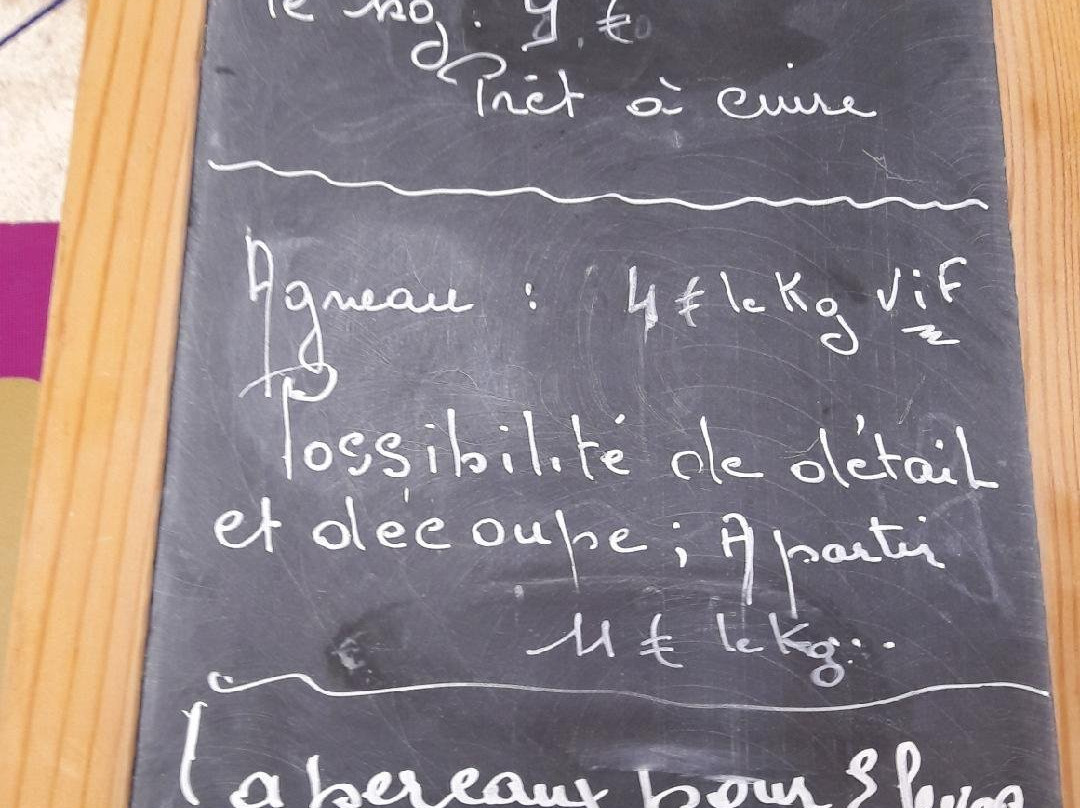 le kg. 9.€
Prêt à cuire
Agneau : 4 € le Kg ViF
Possibilité de détail
et découpe ; A partir
11 € le Kg...
Lapereaux pour